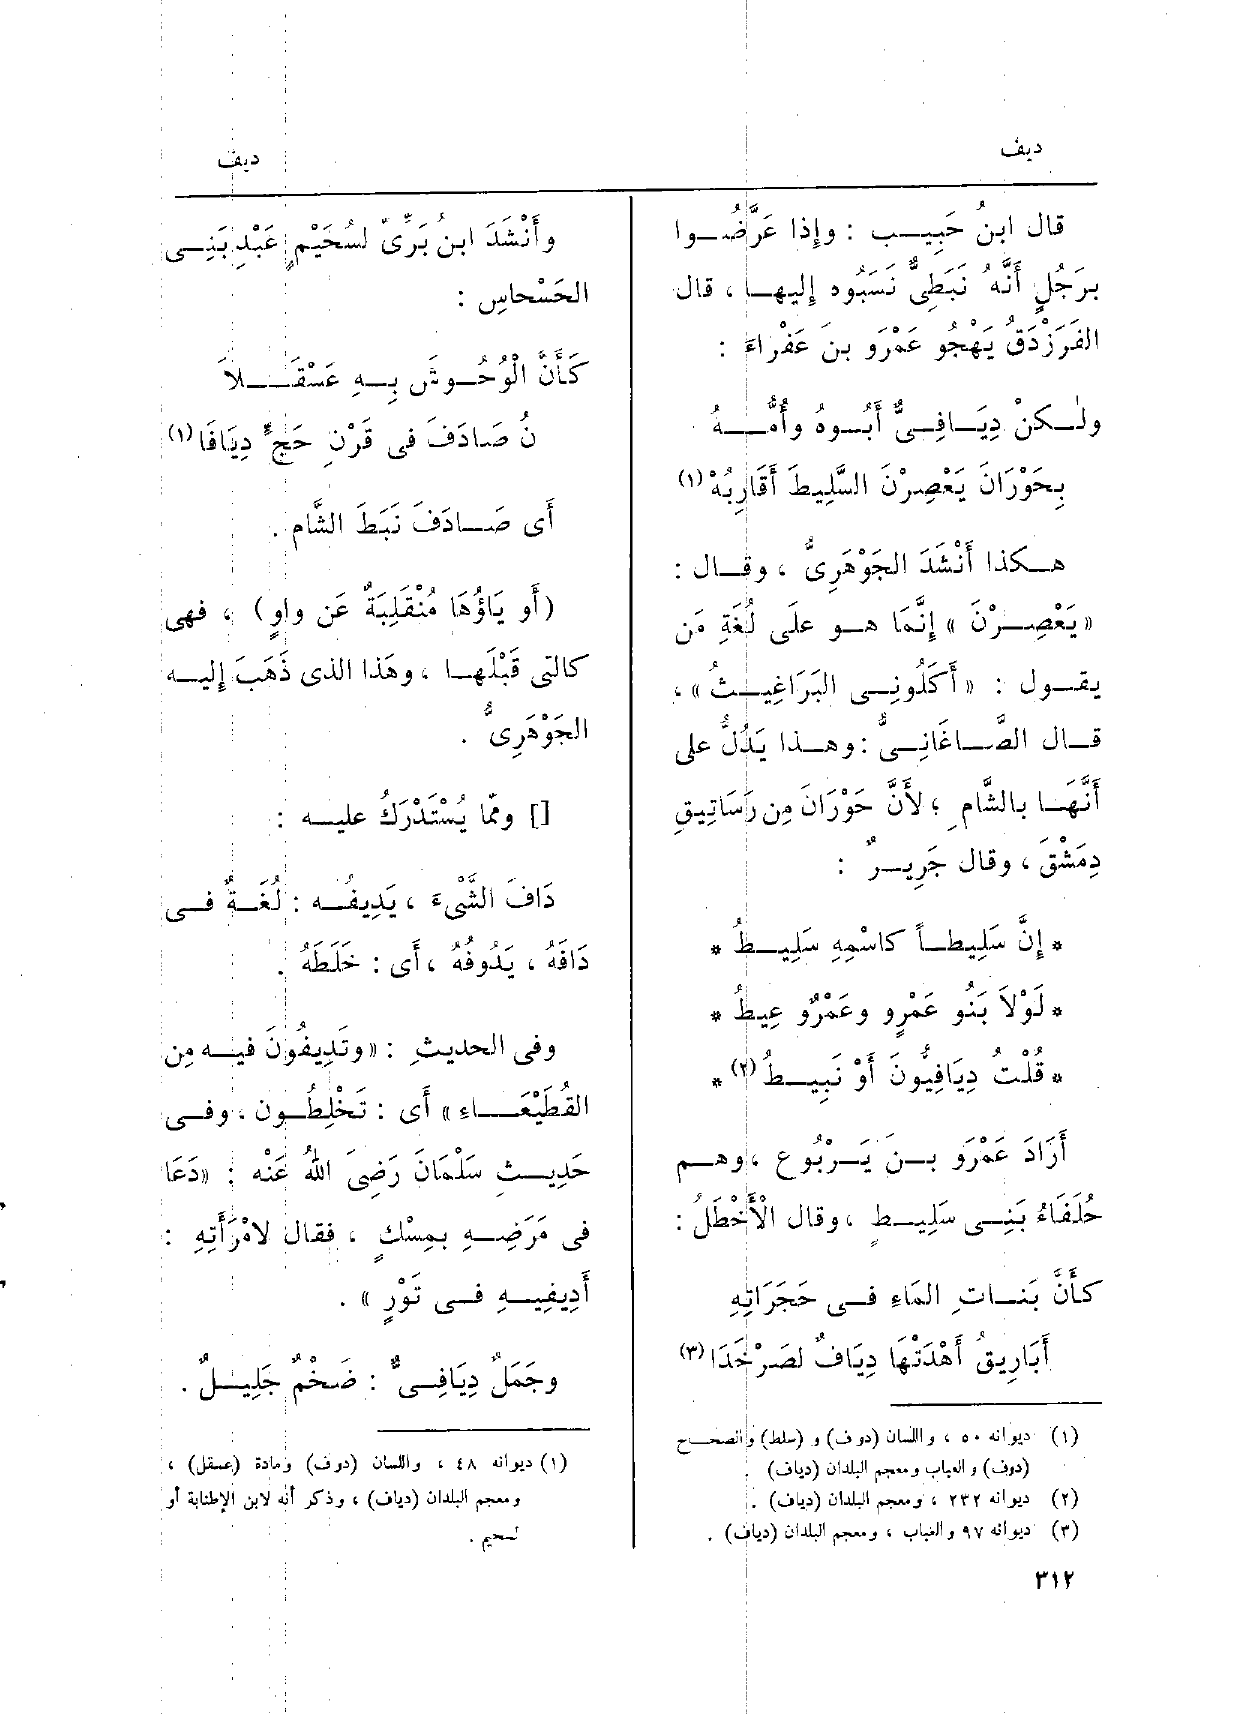 ديف
ديف
قال ابنُ حَبِيب : وإذا عَرَّضُوا
برَجُلٍ أَنَّهُ نَبَطِىٌّ نَسَبُوه إليها ، قال
الفَرَزْدَقُ يَهْجُو عَمْرَو بنَ عَفْراءَ :
ولٰكنْ دِيَافِىٌّ أَبُوهُ وأُمُّهُ
بِحَوْرَانَ يَعْصِرْنَ السَّلِيطَ أَقَارِبُهْ (١)
هكذا أَنْشَدَ الجَوْهَرِىُّ ، وقال :
« يَعْصِرْنَ » إِنَّمَا هو علَى لُغَةِ مَن
يقول : « أَكَلُونِى البَرَاغِيثُ » ،
قال الصَّاغَانِىُّ : وهذا يَدُلُّ على
أَنَّهَا بالشَّامِ ؛ لأَنَّ حَوْرَانَ مِن رَسَاتِيقِ
دِمَشْقَ ، وقال جَرِيرٌ :
* إِنَّ سَلِيطاً كاسْمِهِ سَلِيطُ *
* لَوْلَا بَنُو عَمْرٍو وعَمْرٌو عِيطُ *
* قُلْتُ دِيَافِيُّونَ أَوْ نَبِيطُ (٢) *
أَرَادَ عَمْرَو بنَ يَرْبُوع ، وهم
حُلَفَاءُ بَنِى سَلِيطٍ ، وقال الْأَخْطَلُ :
كأَنَّ بَنَاتِ المَاءِ فى حَجَرَاتِهِ
أَبَارِيقُ أَهْدَتْهَا دِيَافٌ لصَرْخَدَا (٣)
(١) ديوانه ٥٠ ، واللسان (دوف) و (سلط) والصحاح
(دوف) والعباب ومعجم البلدان (دياف) .
(٢) ديوانه ٢٣٢ ، ومعجم البلدان (دياف) .
(٣) ديوانه ٩٧ والعباب ، ومعجم البلدان (دياف) .
وأَنْشَدَ ابنُ بَرِّىٍّ لسُحَيْمٍ عَبْدِ بَنِى
الحَسْحاسِ :
كَأَنَّ الْوُحُوشَ بِهِ عَسْقَلاَ
نُ صَادَفَ فى قَرْنِ حَجٍّ دِيَافَا (١)
أى صَادَفَ نَبَطَ الشَّام .
(أَو يَاؤُهَا مُنْقَلِبَةٌ عَن واوٍ) ، فهى
كالتى قَبْلَها ، وهَذا الذى ذَهَبَ إليه
الجَوْهَرِىُّ .
[] وممّا يُسْتَدْرَكُ عليه :
دَافَ الشَّىْءَ ، يَدِيفُه : لُغَةٌ فى
دَافَهُ ، يَدُوفُهُ ، أى : خَلَطَهُ .
وفى الحديثِ : « وتَدِيفُونَ فيه مِن
القُطَيْعَاءِ » أَى : تَخْلِطُون ، وفى
حَدِيثِ سَلْمَانَ رَضِىَ اللهُ عَنْه : « دَعَا
فى مَرَضِهِ بمِسْكٍ ، فقال لامْرَأَتِهِ :
أَدِيفِيهِ فى تَوْرٍ » .
وجَمَلٌ دِيَافِىٌّ : ضَخْمٌ جَلِيلٌ .
(١) ديوانه ٤٨ ، واللسان (دوف) ومادة (عسقل) ،
ومعجم البلدان (دياف) ، وذكر أنه لابن الإطنابة أو
لسحيم .
٣١٢